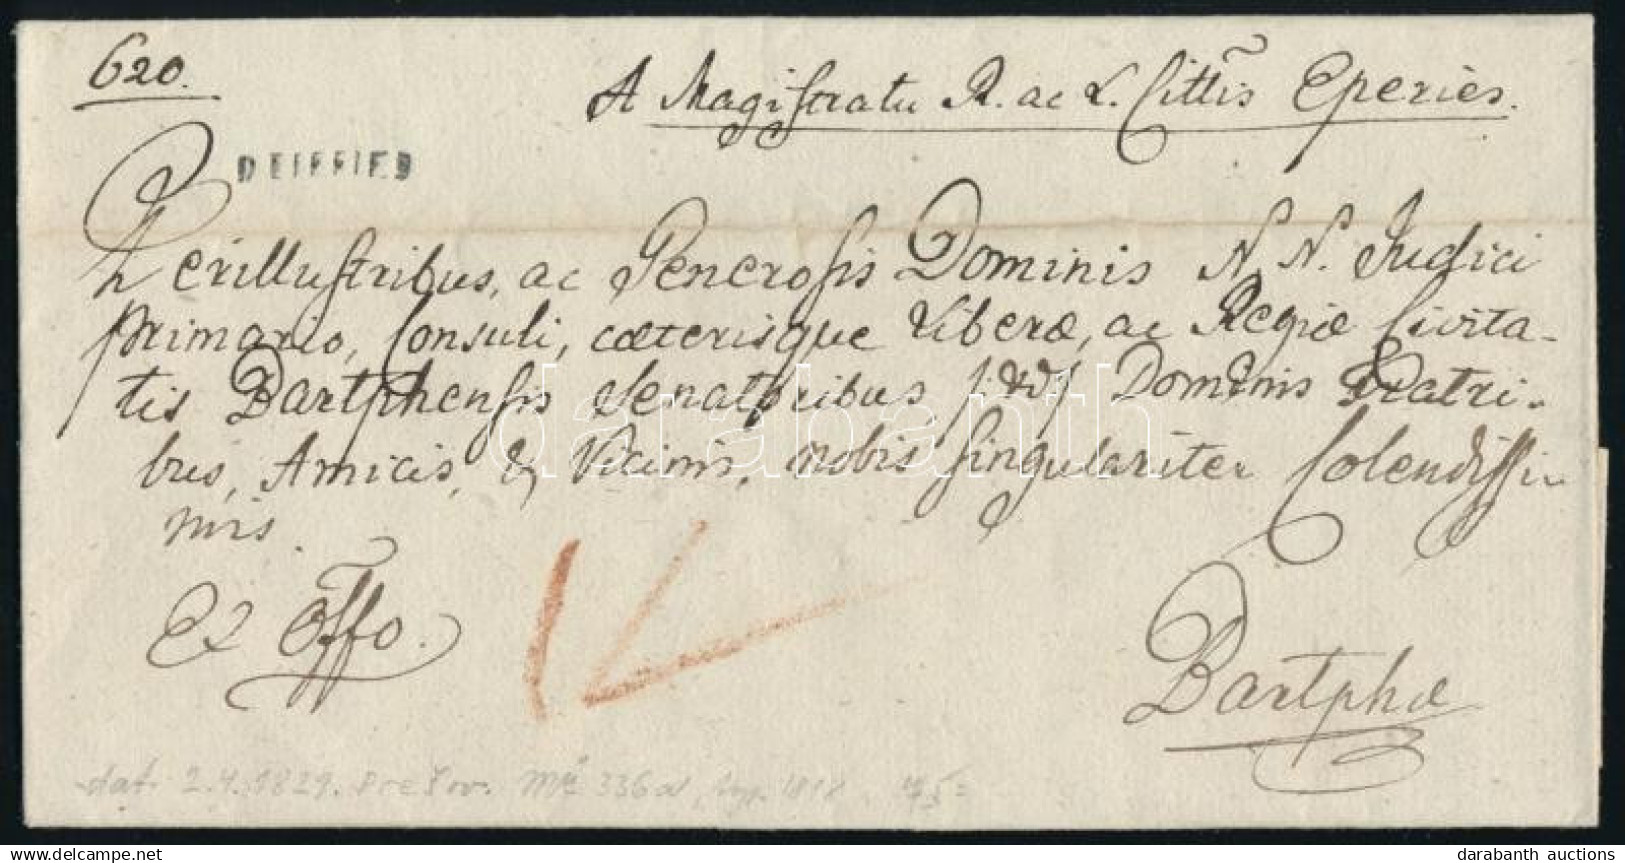 620.
A Magistratu R. ac L. Cittis Eperies.
Perillustribus, ac Generosis Dominis N. N. Judici
primario, Consuli, cæterisque Liberæ, ac Regiæ Civita-
tis Bartphensis Senatoribus Dominis Fratri-
bus, Amicis, & Vicinis, nobis singulariter Colendissi-
mis.
Ex Offo.
Bartphæ
dat. 2.4.1829. Presov. 336
darabanth
darabanth auctions